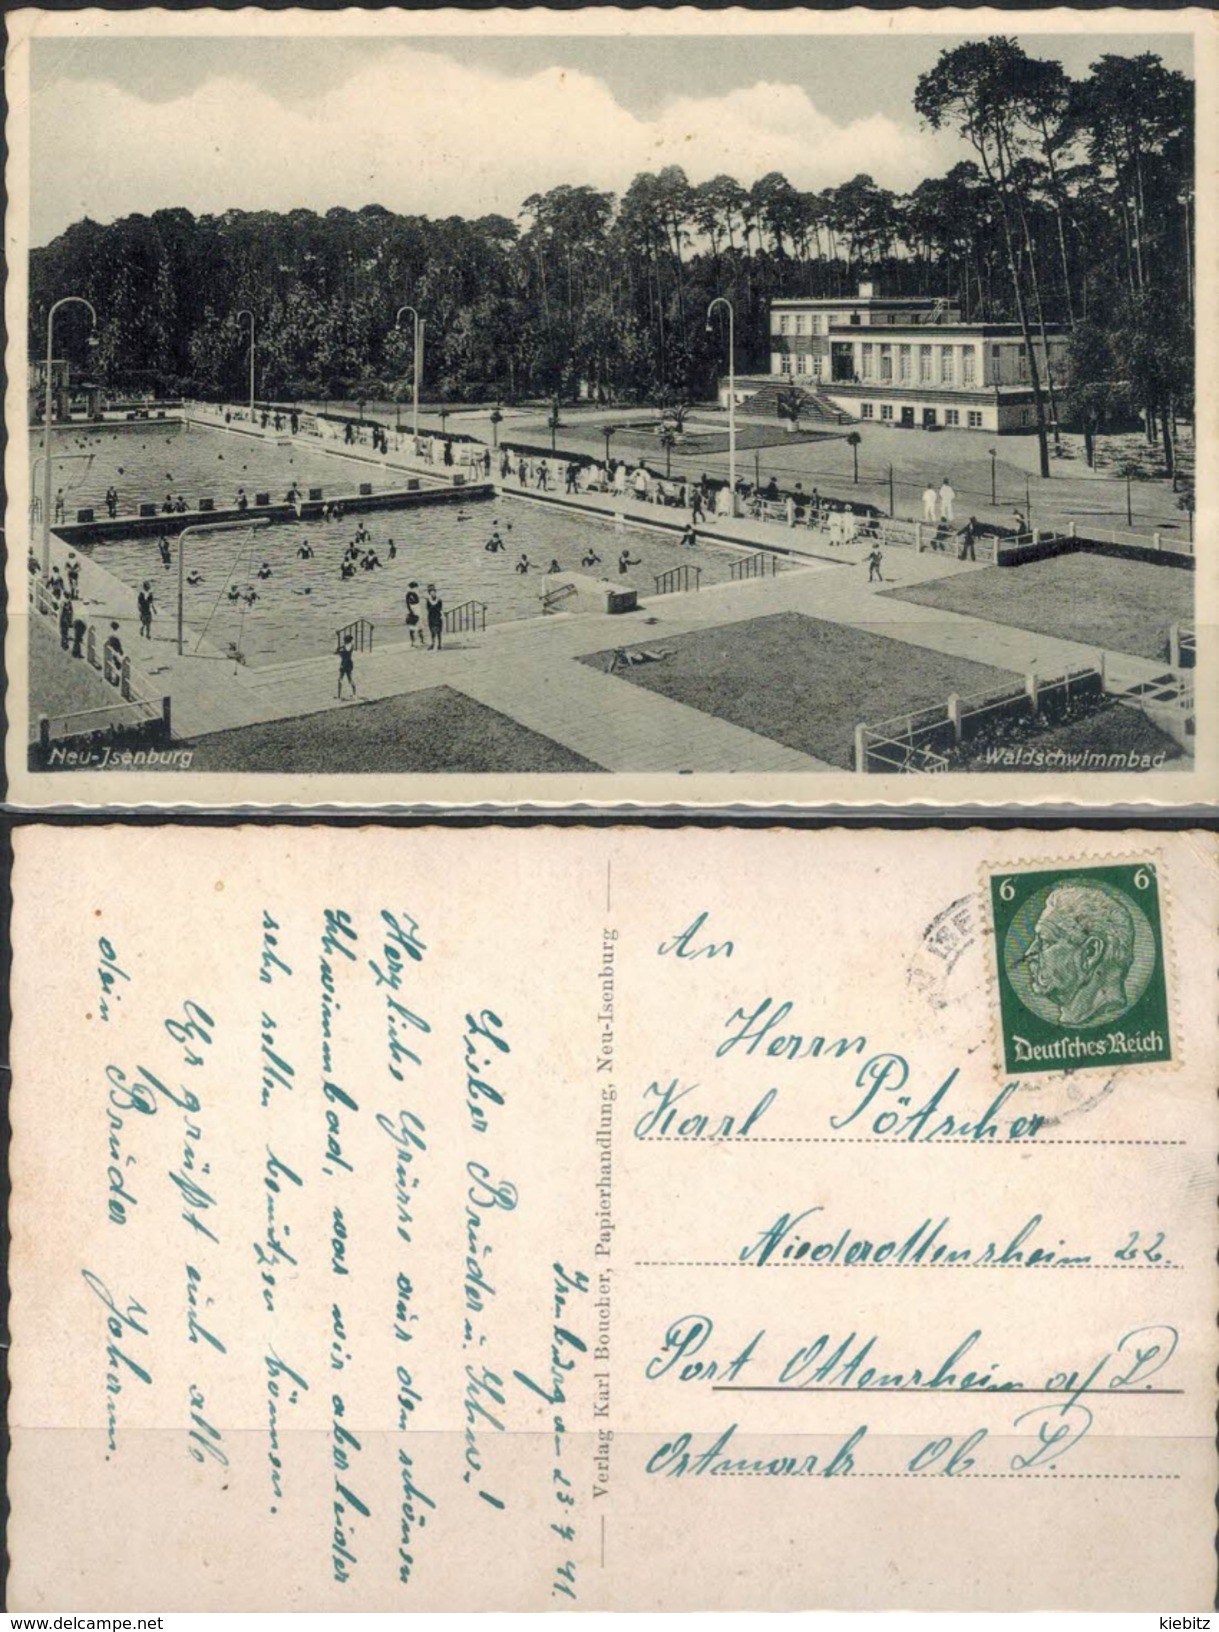 Neu-Isenburg
Waldschwimmbad
6 6
Deutsches Reich
An
Herrn
Karl Pötscher
Niederottensheim 22.
Post Ottensheim a/D.
Ostmark Ob D.
Verlag Karl Boucher, Papierhandlung, Neu-Isenburg
Isenburg am 23. 7 41.
Lieber Bruder u. Schw.!
Herzliche Grüsse aus den schönen
Schwimmbad, was wir aber leider
sehr selten benützen können.
Es grüßt euch alle
dein Bruder Johann.
kiebitz
www.delcampe.net